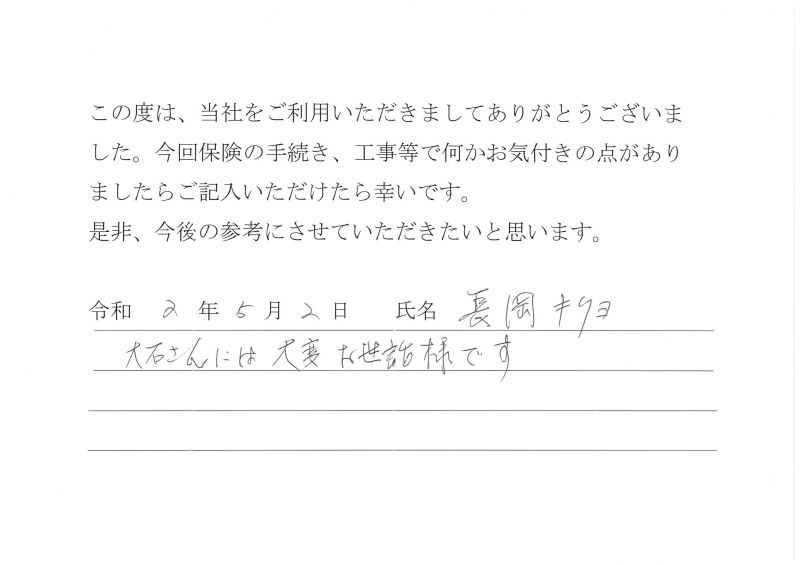 この度は、当社をご利用いただきましてありがとうございま
した。今回保険の手続き、工事等で何かお気付きの点があり
ましたらご記入いただけたら幸いです。
是非、今後の参考にさせていただきたいと思います。
令和 2 年 5 月 2 日 氏名 長岡キクヨ
大石さんには大変お世話様です